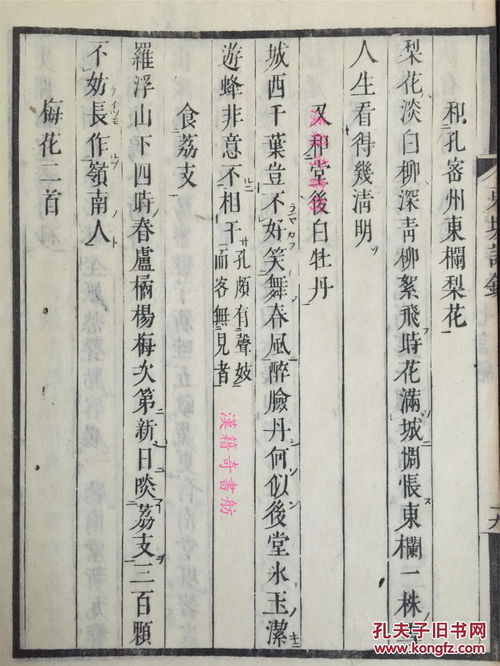 和孔密州東欄梨花
梨花淡白柳深青柳絮飛時花滿城惆悵東欄一株雪
人生看得幾淸明
又和堂後白牡丹
城西千葉豈不好笑舞春風醉臉丹何似後堂氷玉潔
遊蜂非意不相干孔頗有聲妓而客無見者
食荔支
羅浮山下四時春盧橘楊梅次第新日啖荔支三百顆
不妨長作嶺南人
梅花二首
漢籍奇書舫
孔夫子旧书网
www.kongfz.com